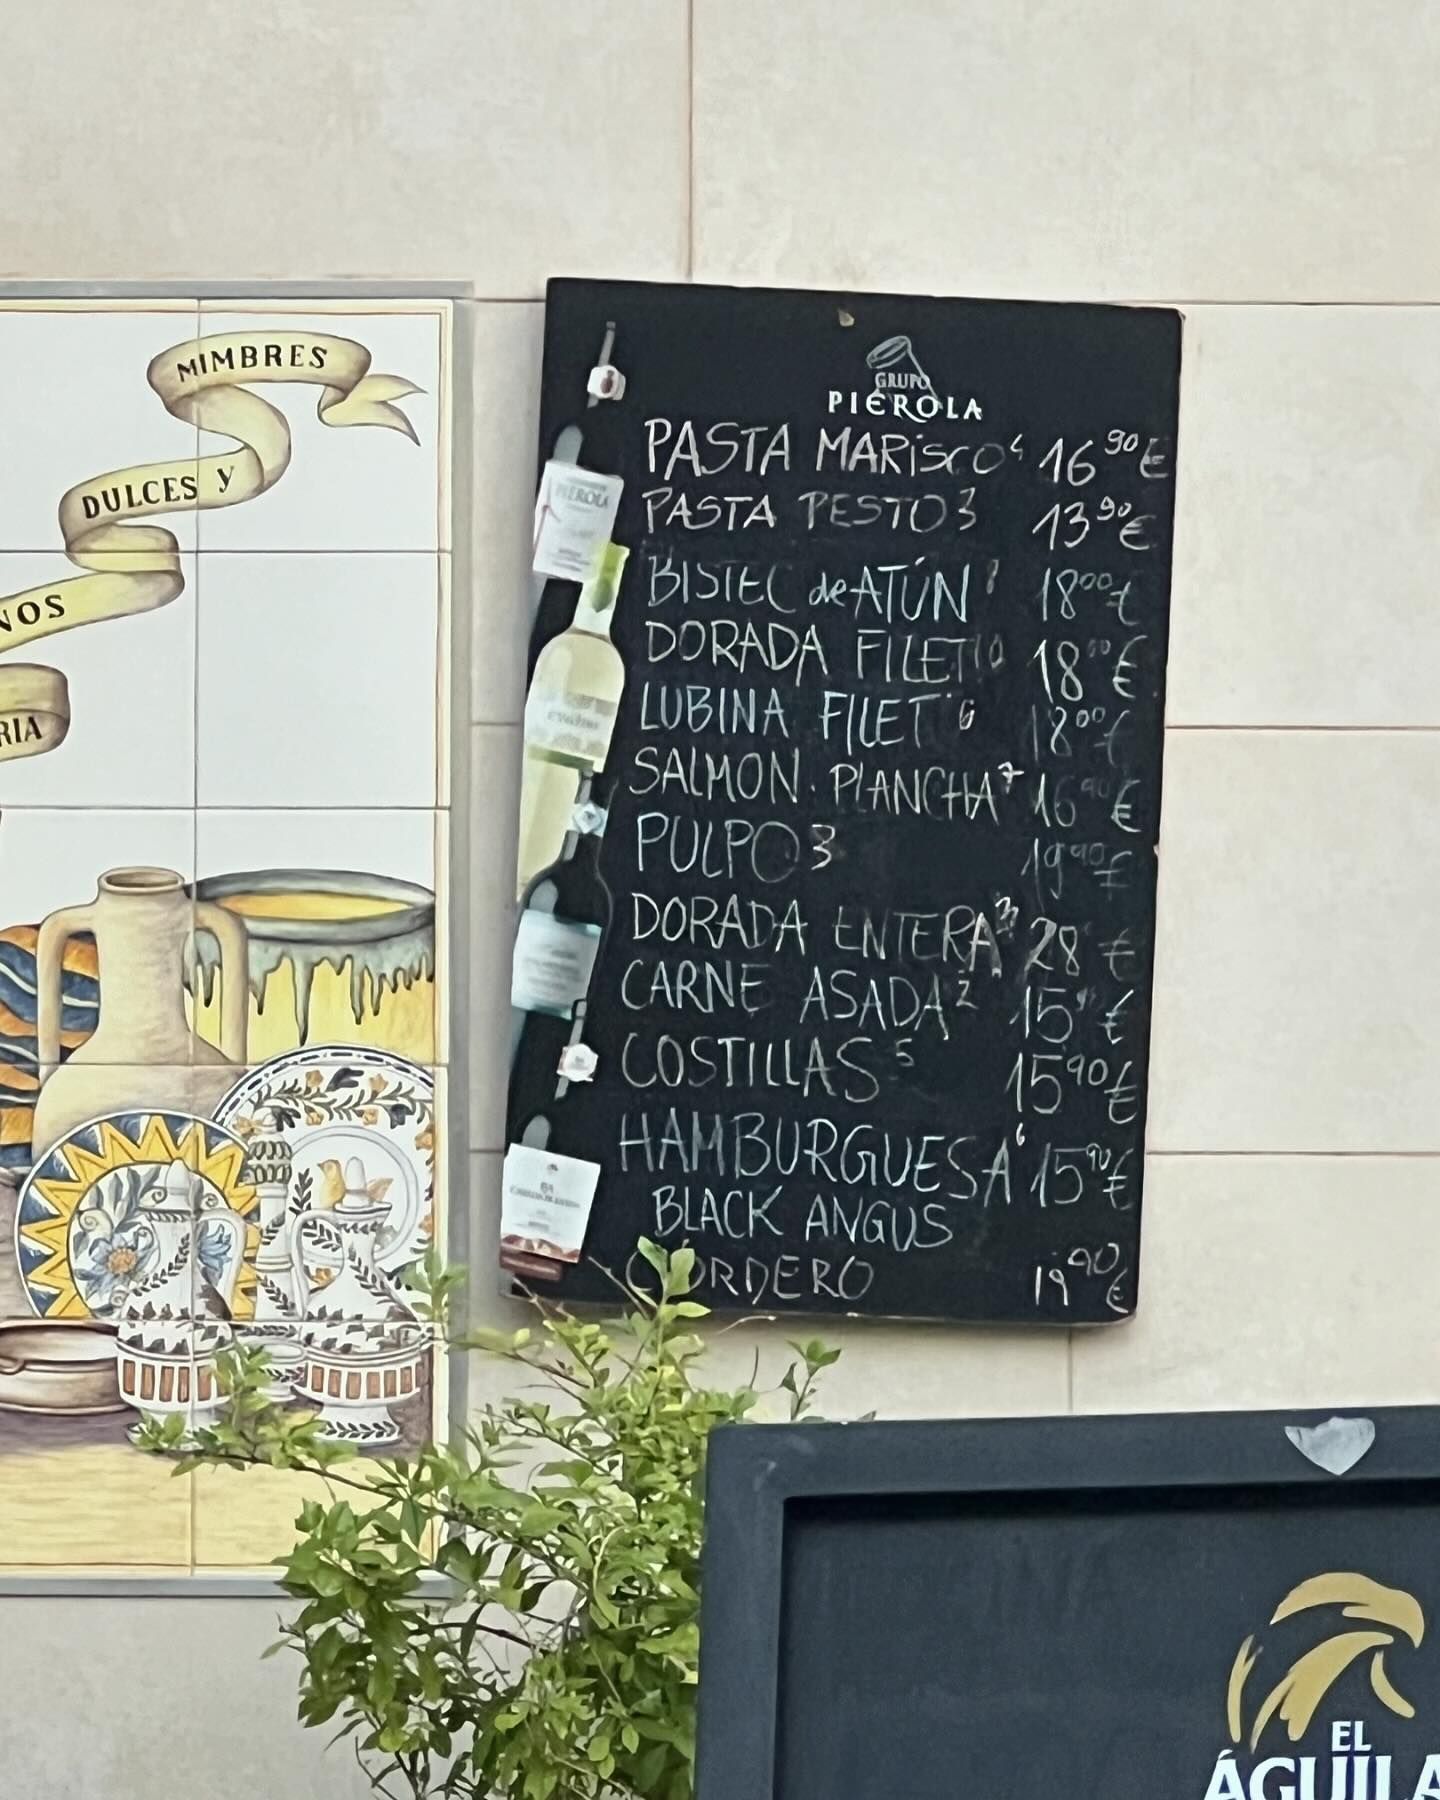 MIMBRES
DULCES y
NOS
RIA
GRUPO
PIÉROLA
PASTA MARISCO 4 16,90€
PASTA PESTO 3 13,90€
BISTEC de ATÚN 18,00€
DORADA FILET 18,00€
LUBINA FILET 6 18,00€
SALMON. PLANCHA 7 16,90€
PULPO 3 19,90€
DORADA ENTERA 28 €
CARNE ASADA 2 15,90€
COSTILLAS 5 15,90€
HAMBURGUESA 6 15,90€
BLACK ANGUS
CORDERO 19,90€
PIÉROLA
EL
ÁGUILA